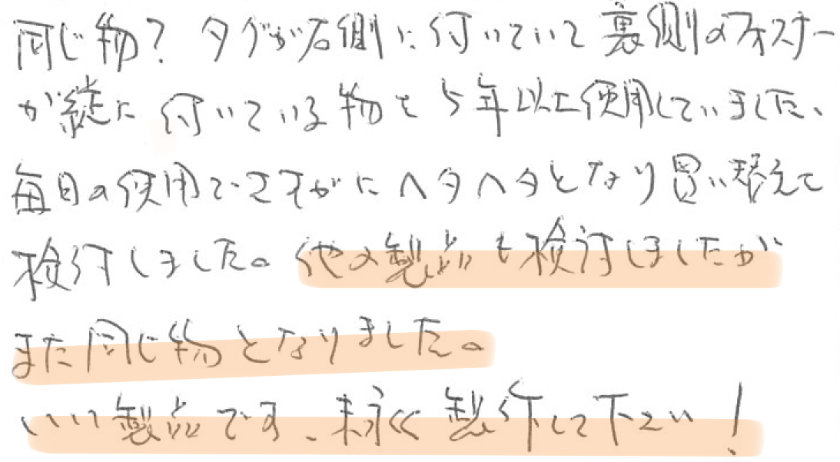 同じ物？タグが右側に付いていて裏側のファスナー
が縦に付いている物を5年以上使用していました、
毎日の使用でさすがにヘタヘタとなり買い替えを
検討しました。他の製品も検討しましたが
また同じ物となりました。
いい製品です、末永く製作して下さい！